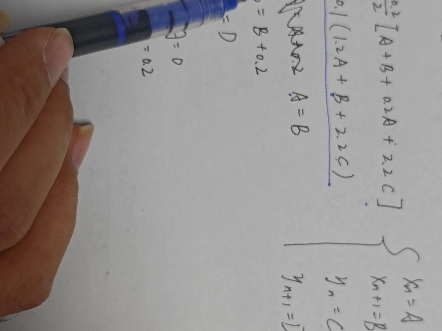 0.2/2 [A+B+0.2A+2.2C]
0.1(1.2A+B+2.2C)
A=B
=B+0.2
=D
=0
=0.2
{ xn=A
xn+1=B
yn=C
yn+1=D